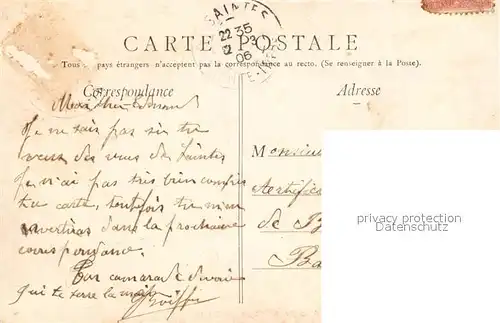 SAINTES
22 35
2 3
06
CARTE POSTALE
Tous pays étrangers n'acceptent pas la correspondance au recto. (Se renseigner à la Poste).
Correspondance
Adresse
Mon cher
Je ne sais pas si tu
veux des vues de Saintes
Je n'ai pas très bien compris
ta carte, toutefois tu m'en
avertiras dans la prochaine
correspondance.
Ton camarade
qui te serre la main
Monsieur
de
privacy protection
Datenschutz